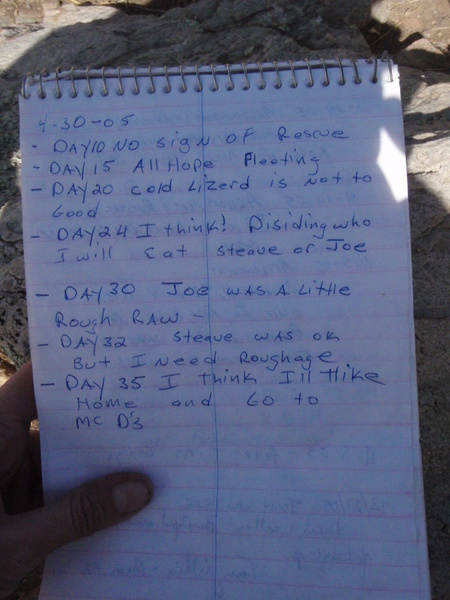 4-30-05
- DAY 10 NO SIGN OF RESCUE
- DAY 15 All Hope Fleating
- DAY 20 Cold Lizerd is Not to
Good
- DAY 24 I think! Disiding who
I will Eat Steave or Joe
- DAY 30 Joe was A Little
Rough RAW -
- DAY 32 Steave was ok
But I Need Roughage
- DAY 35 I think I'll Hike
Home and Go to
MC D's